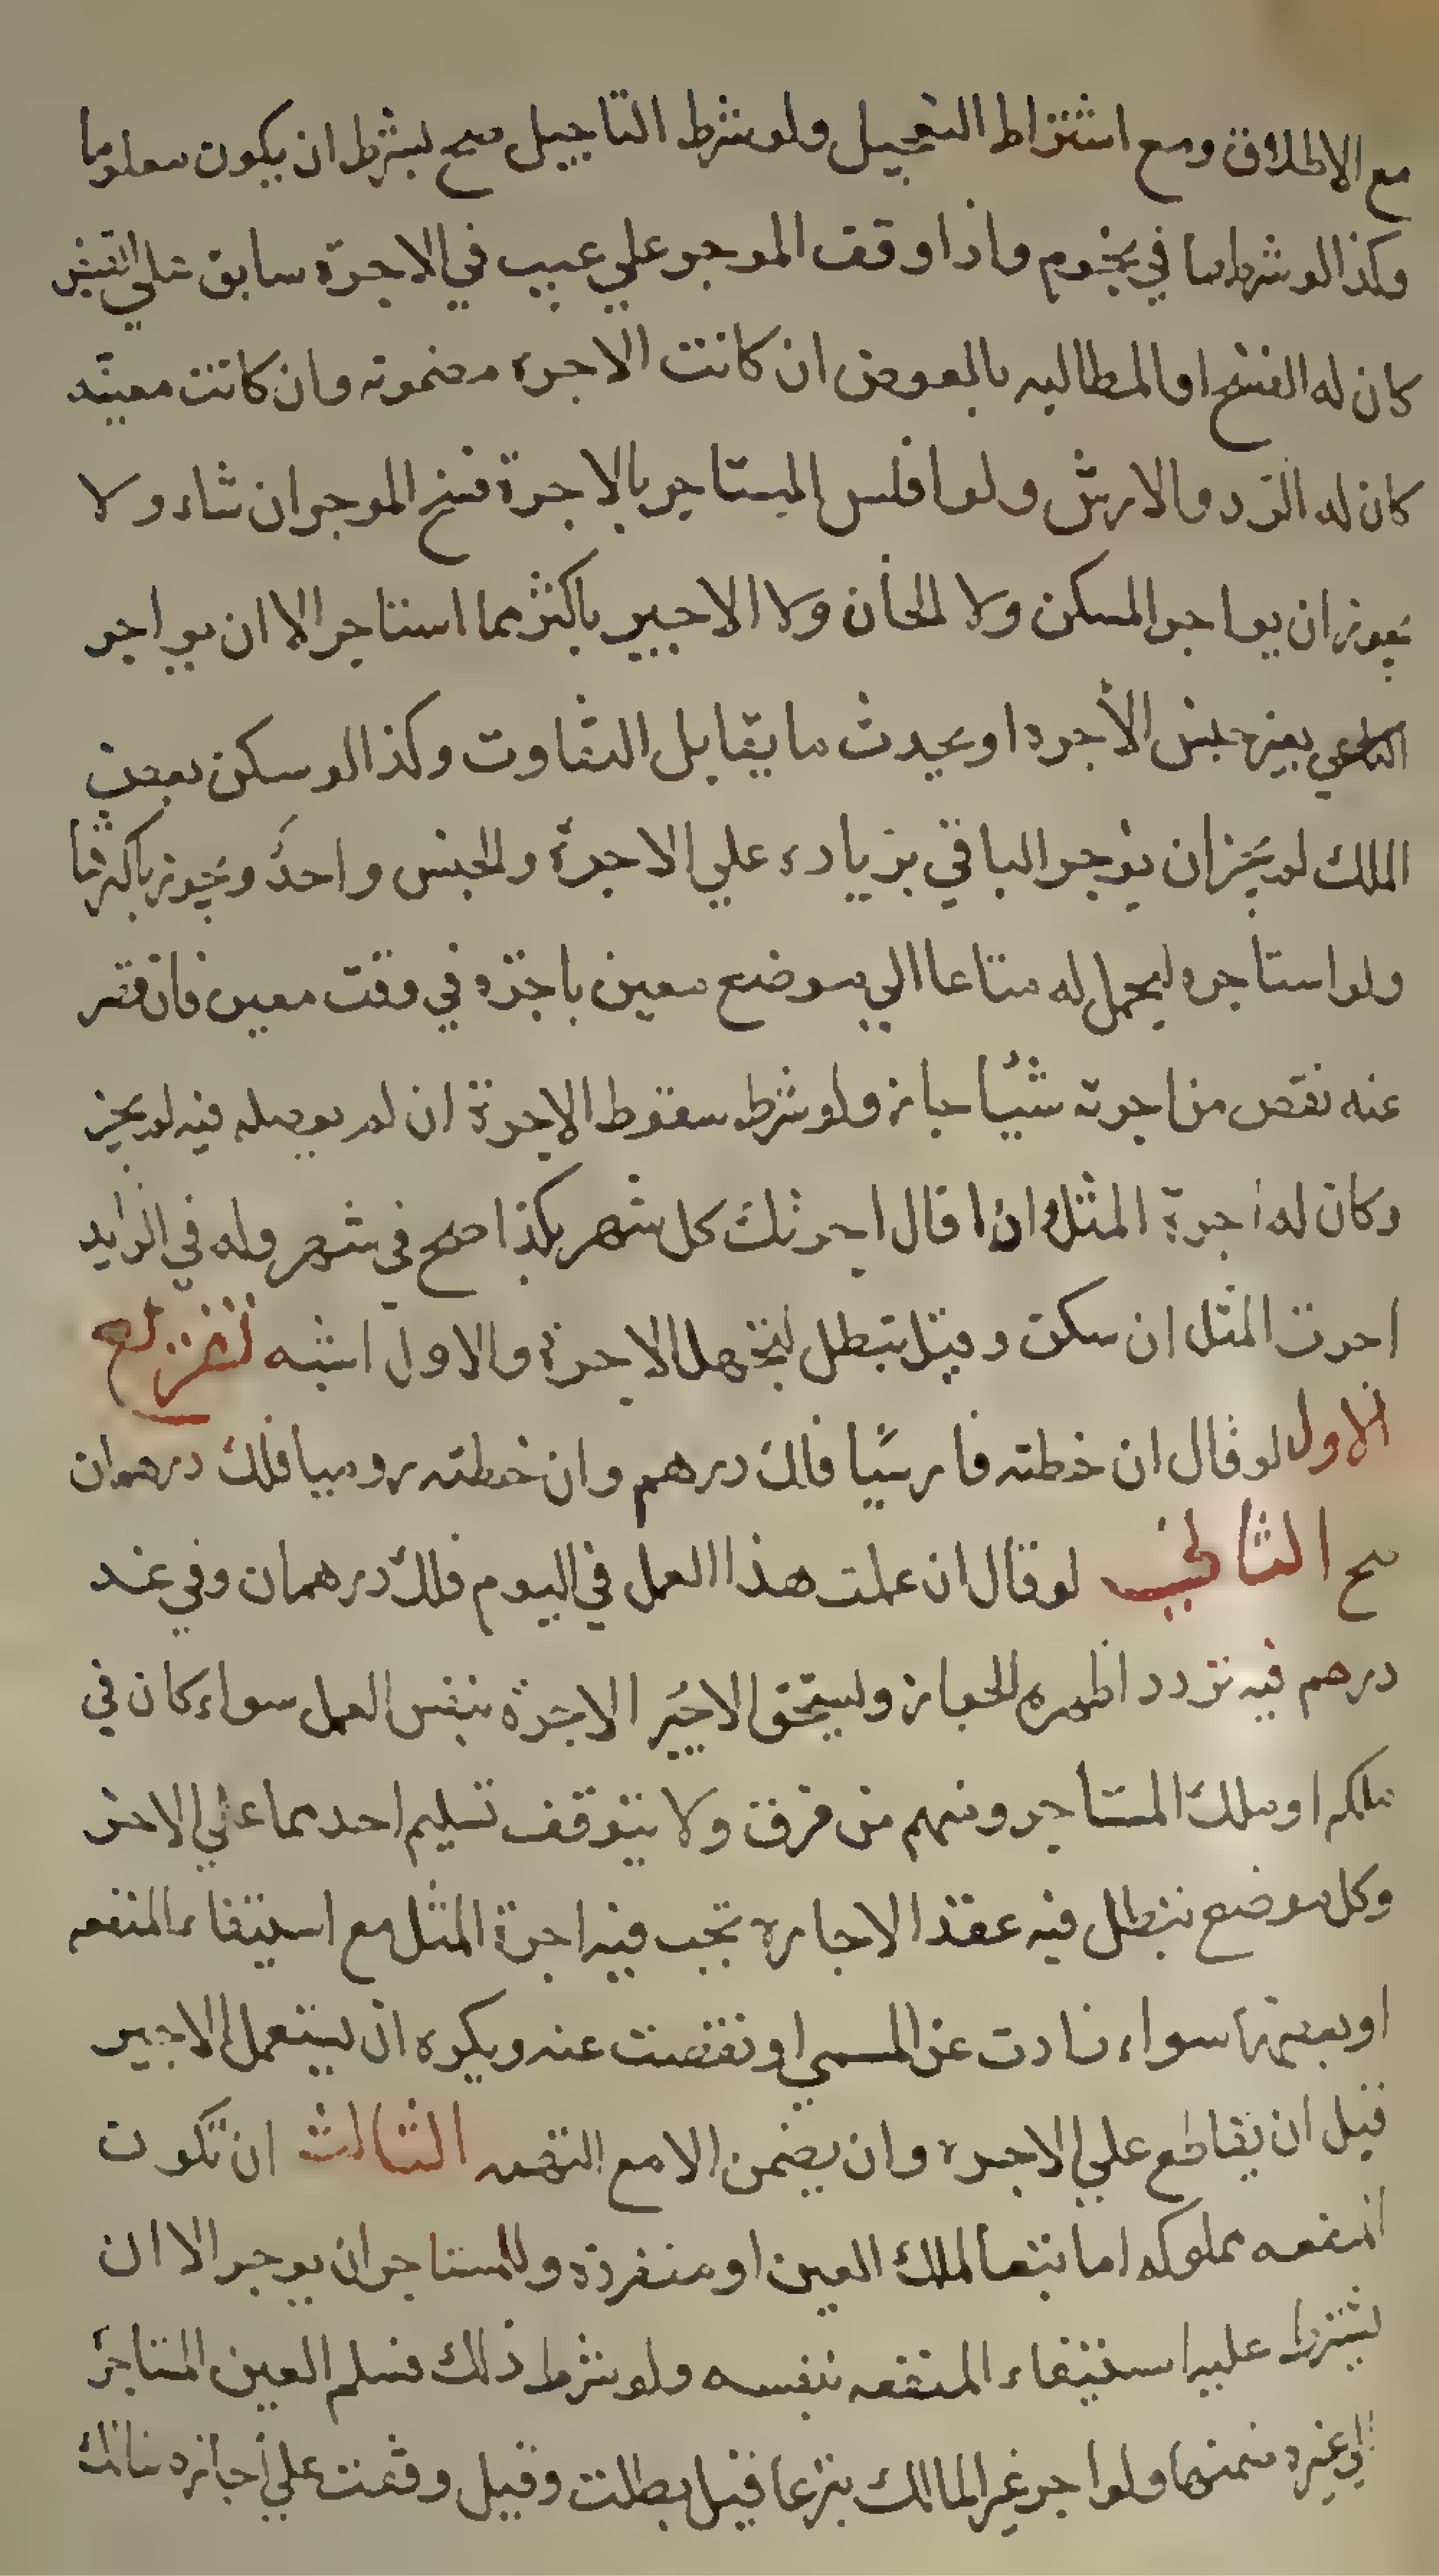 مع الاطلاق ومع اشتراط التعجيل ولو شرط التاجيل صح بشرط ان يكون معلوما
وكذا لو شرطها في نجوم واذا وقف الموجر علي عيب في الاجرة سابق علي القبض
كان له الفسخ او المطالبه بالعوض ان كانت الاجره مضمونه وان كانت معينه
كان له الرد والارش ولو افلس المستاجر بالاجرة فسخ الموجر ان شاء ولا
يجوز ان يواجر المسكن ولا الخان ولا الاجير باكثر مما استاجر الا ان يواجر
بغير جنس الأجره او يحدث ما يقابل التفاوت وكذا لو سكن بعض
الملك لم يجز ان يوجر الباقي بزياده علي الاجرة والجنس واحد ويجوز باكثرها
ولو استاجره ليحمل له متاعا الي موضع معين باجره في وقت معين فان قصر
عنه نقص من اجرته شيئا جاز ولو شرط سقوط الاجرة ان لم يوصله فيه لم يجز
وكان له اجرة المثل واذا قال اجرتك كل شهر بكذا صح في شهر وله في الزايد
اجرت المثل ان سكن وقيل تبطل لتجهل الاجرة والاول اشبه تفريع
الاول لو قال ان خطته فارسيا فلك درهم وان خطته روميا فلك درهمان
صح الثاني لو قال ان عملت هذا العمل في اليوم فلك درهمان وفي غد
درهم فيه تردد اظهره الجواز ويستحق الاجير الاجرة بنفس العمل سواء كان في
ملكه او ملك المستاجر ومنهم من فرق ولا يتوقف تسليم احدهما علي الاخر
وكل موضع تبطل فيه عقد الاجاره تجب فيه اجرة المثل مع استيفاء المنفعه
او بعضها سواء زادت عن المسمي او نقصت عنه ويكره ان يستعمل الاجير
قبل ان يقاطع علي الاجره وان يضمن الا مع التهمه الثالث ان تكون
المنفعه مملوكه اما تبعا لملك العين او منفردة وللمستاجر ان يوجر الا ان
يشترط عليه استيفاء المنفعه بنفسه ولو شرط ذلك فسلم العين المستاجرة
الي غيره ضمنها ولو اجر غير المالك تبرعا قيل بطلت وقيل وقفت علي اجازه المالك